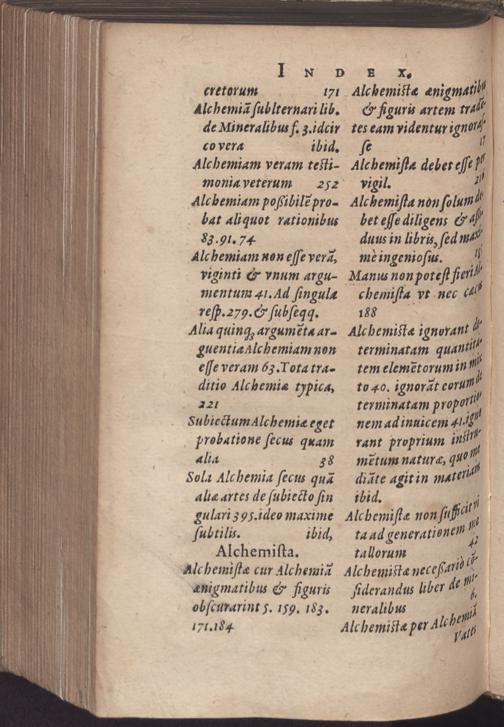 INDEX.
cretorum 171
Alchemiā ſublternari lib.
de Mineralibus f. 3. idcir
co vera ibid.
Alchemiam veram teſti-
monia veterum 252
Alchemiam poßibilē pro-
bat aliquot rationibus
83. 91. 74
Alchemiam non eſſe verā,
viginti & vnum argu-
mentum 41. Ad ſingula
reſp. 279. & ſubſeqq.
Alia quinq; argumēta ar-
guentia Alchemiam non
eſſe veram 63. Tota tra-
ditio Alchemiæ typica,
221
Subiectum Alchemiæ eget
probatione ſecus quam
alia 38
Sola Alchemia ſecus quā
aliæ artes de ſubiecto ſin
gulari 395. ideo maxime
ſubtilis. ibid,
Alchemiſta.
Alchemiſtæ cur Alchemiā
ænigmatibus & figuris
obſcurarint 5. 159. 183.
171. 184
Alchemiſtæ ænigmatibus
& figuris artem tradē-
tes eam videntur ignoraſ-
ſe 17
Alchemiſta debet eſſe per
vigil.
Alchemiſta non ſolum de-
bet eſſe diligens & aſſi-
duus in libris, ſed maxi-
mè ingenioſus.
Manus non poteſt fieri Al-
chemiſta vt nec cæcus
188
Alchemiſta ignorant de-
terminatam quantita-
tem elemētorum in mix
to 40. ignorāt eorum de
terminatam proportio-
nem ad inuicem 41. igno
rant proprium inſtru-
mētum naturæ, quo me
diāte agit in materiam
ibid.
Alchemiſtæ non ſufficit vi
ta ad generationem me
tallorum 42
Alchemiſtæ neceſſariò cō-
ſiderandus liber de mi-
neralibus 6.
Alchemiſtæ per Alchemiā